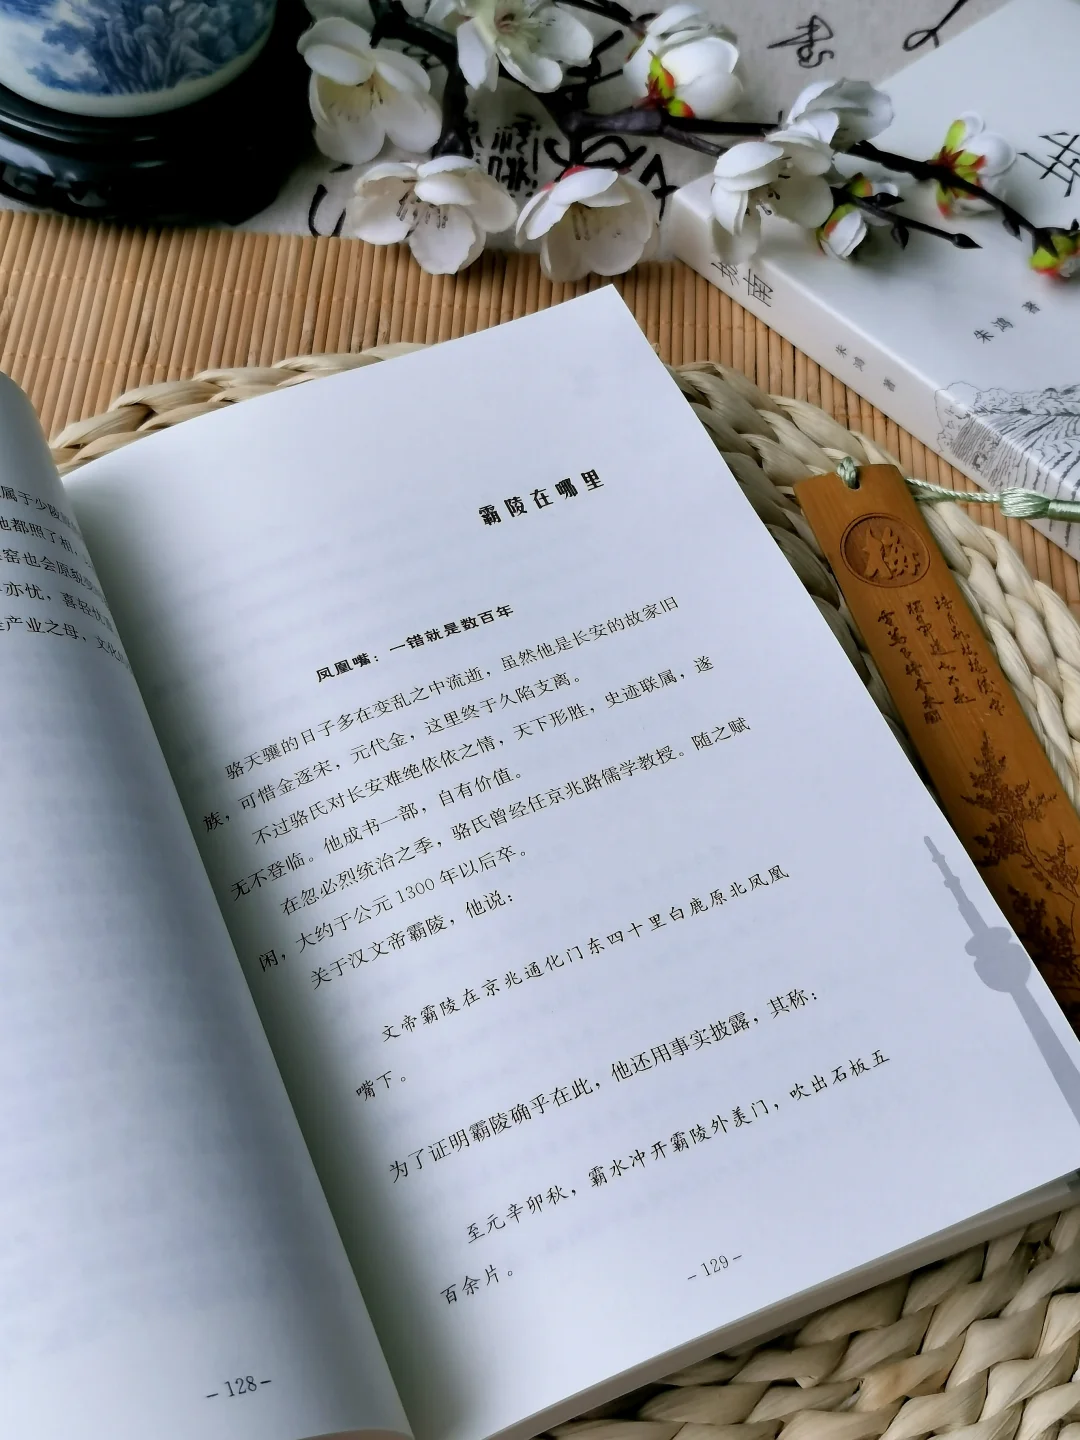 属于少陵
地都照了相
窑也会原貌
亦忧，喜轻忧
产业之母，文化
－128－
霸陵在哪里
凤凰嘴：一错就是数百年
骆天骧的日子多在变乱之中流逝，虽然他是长安的故家旧
族，可惜金逐宋，元代金，这里终于久陷支离。
不过骆氏对长安难绝依依之情，天下形胜，史迹联属，遂
无不登临。他成书一部，自有价值。
在忽必烈统治之季，骆氏曾经任京兆路儒学教授。随之赋
闲，大约于公元1300年以后卒。
关于汉文帝霸陵，他说：
文帝霸陵在京兆通化门东四十里白鹿原北凤凰
嘴下。
为了证明霸陵确乎在此，他还用事实披露，其称：
至元辛卯秋，霸水冲开霸陵外羡门，吹出石板五
百余片。
－129－
城南
朱鸿 著
朱鸿 著
梅